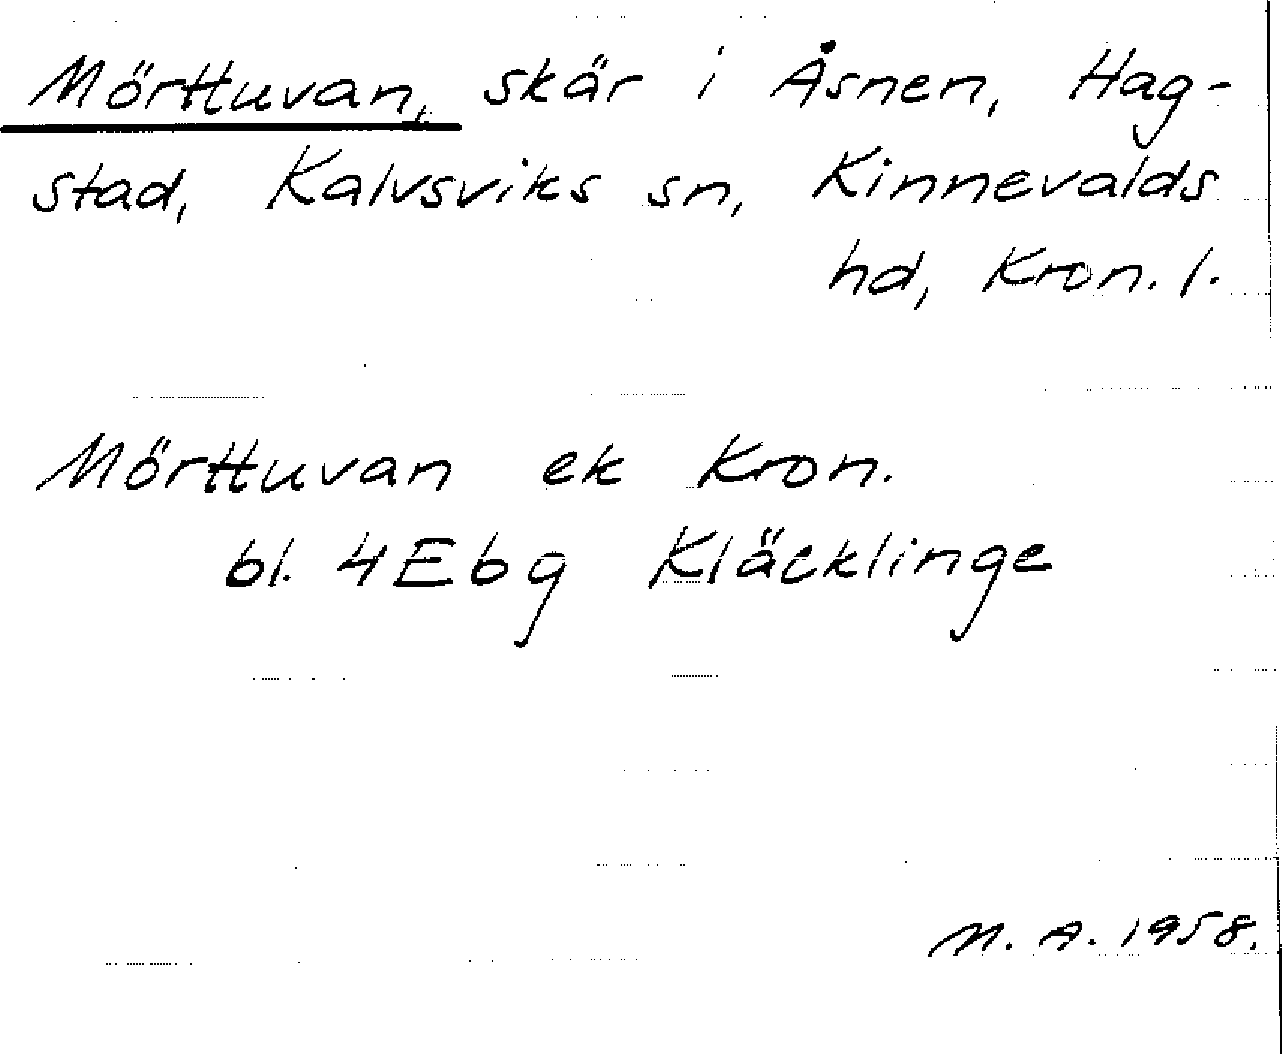 Mörttuvan, skär i Åsnen, Hag-
stad, Kalvsviks sn, Kinnevalds
hd, Kron. l.
Mörttuvan ek Kron.
bl. 4Ebg Kläcklinge
M. A. 1958.